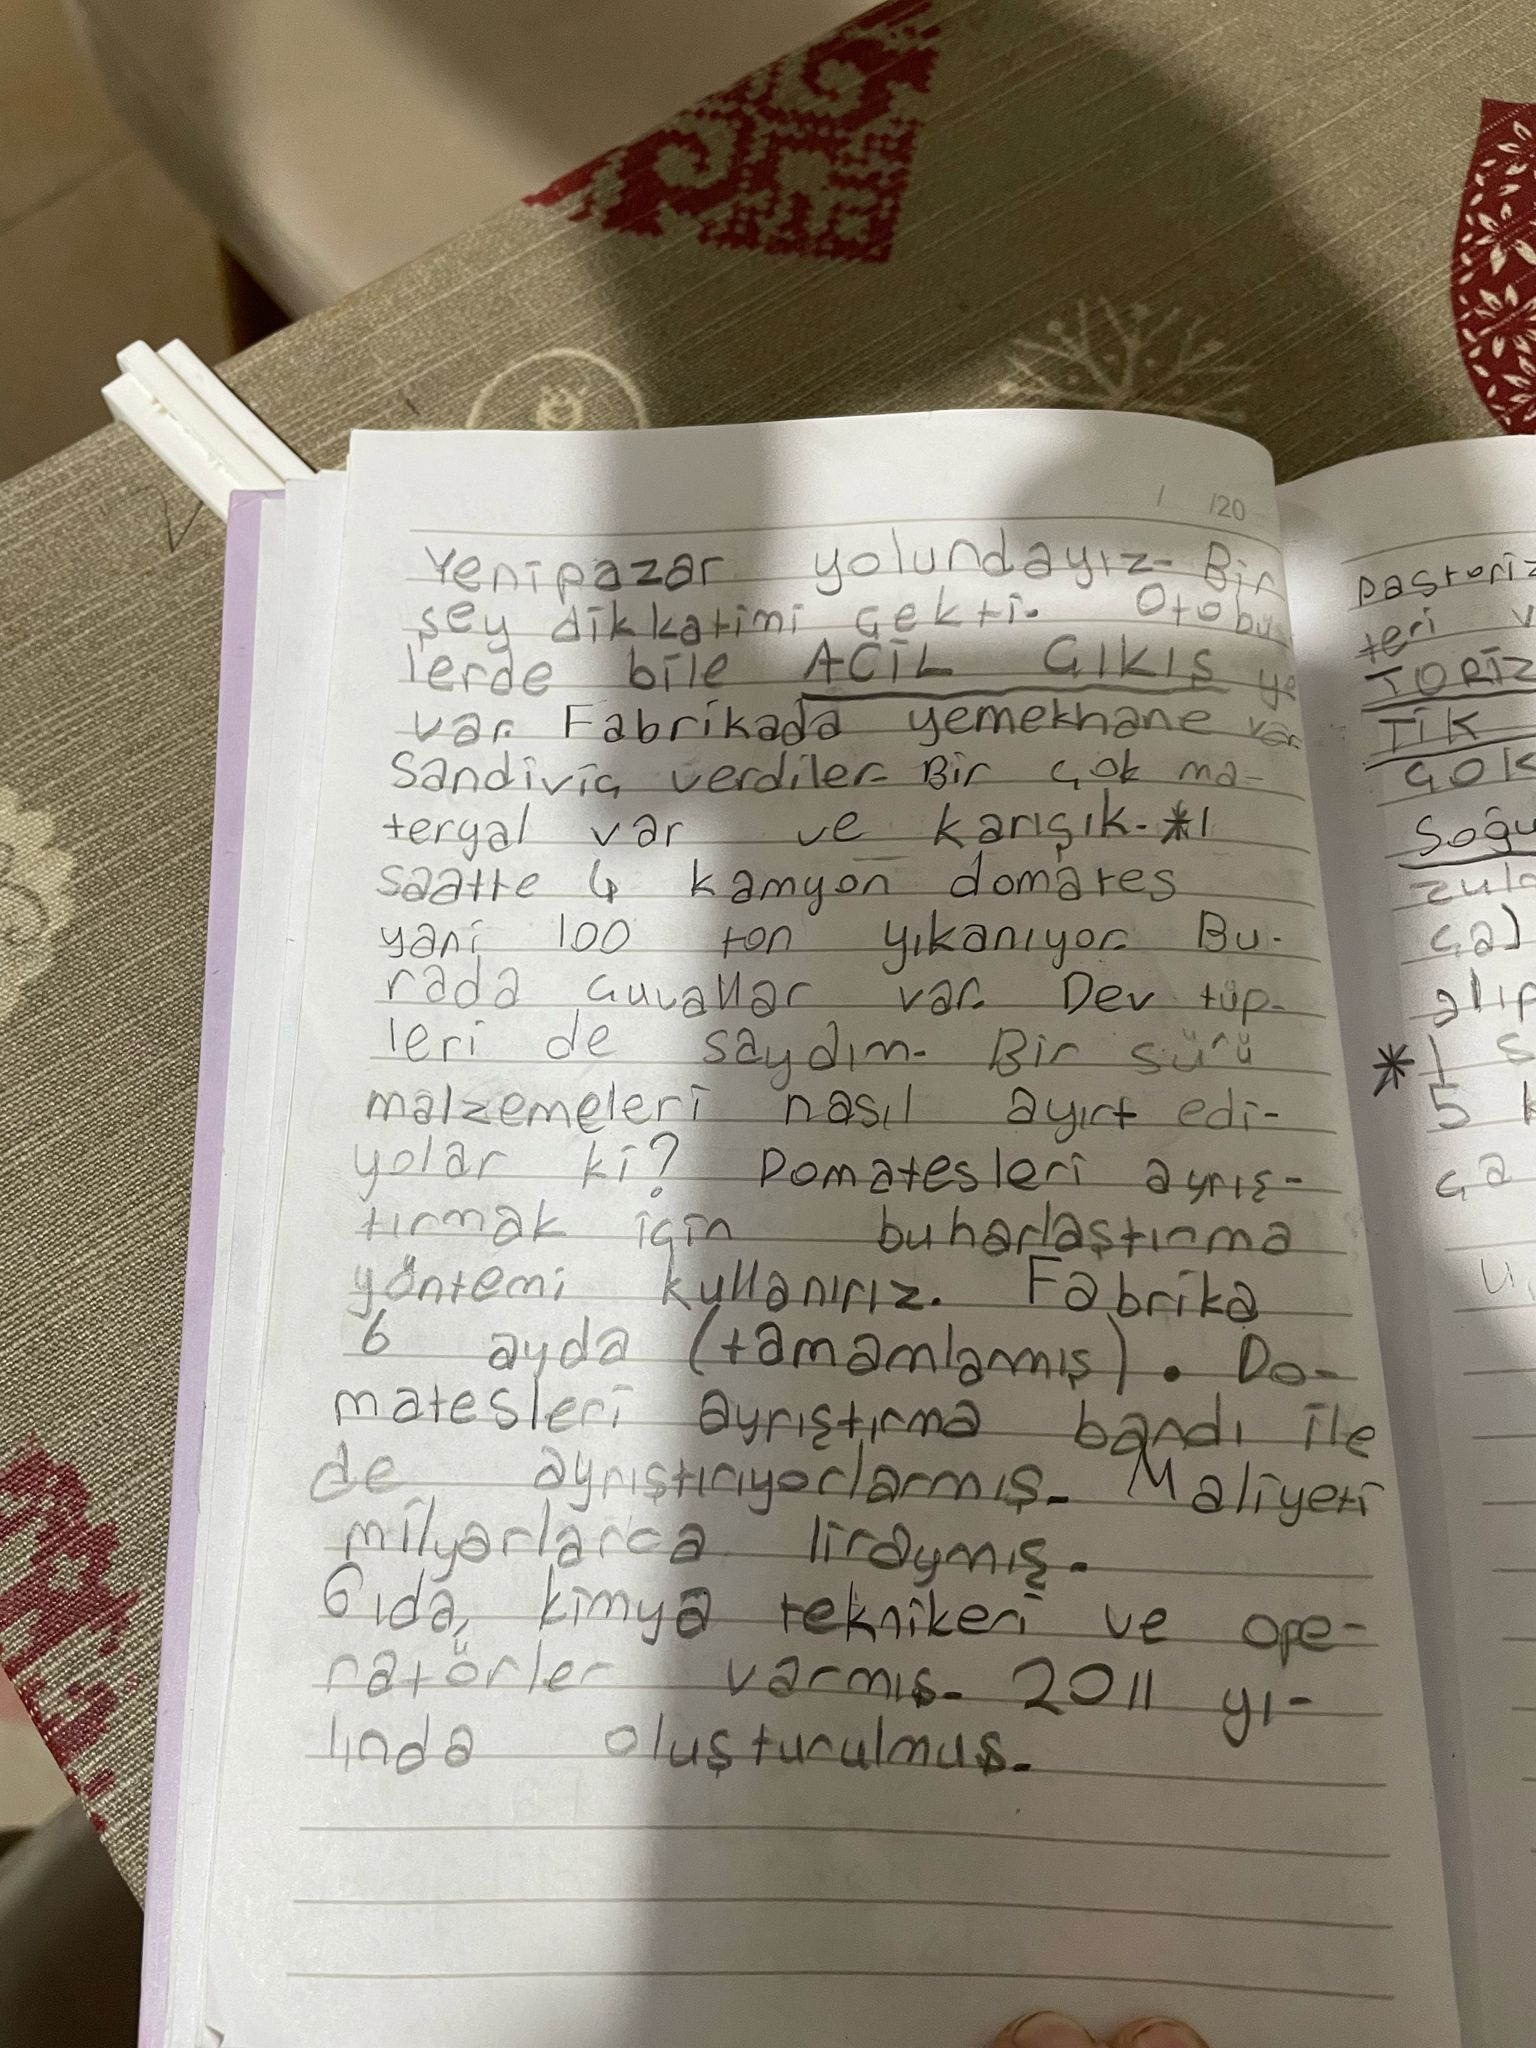 / /20
Yenipazar yolundayız. Bir
şey dikkatimi çekti. Otobüs
lerde bile ACİL ÇIKIŞ
var. Fabrikada yemekhane var.
Sandiviç verdiler. Bir çok ma-
teryal var ve karışık. *1
saatte 4 kamyon domates
yani 100 ton yıkanıyor. Bu-
rada çuvallar var. Dev tüp-
leri de saydım. Bir sürü
malzemeleri nasıl ayırt edi-
yolar ki? Domatesleri ayrış-
tırmak için buharlaştırma
yöntemi kullanırız. Fabrika
6 ayda (tamamlanmış). Do-
matesleri ayrıştırma bandı ile
de ayrıştırıyorlarmış. Maliyeti
milyarlarca liraymış.
Gıda, kimya teknikeri ve ope-
ratörler varmış. 2011 yı-
lında oluşturulmuş.
pastoriz
teri
TORİZ
TİK
ÇOK
soğu
alıp
*1 s
5 k